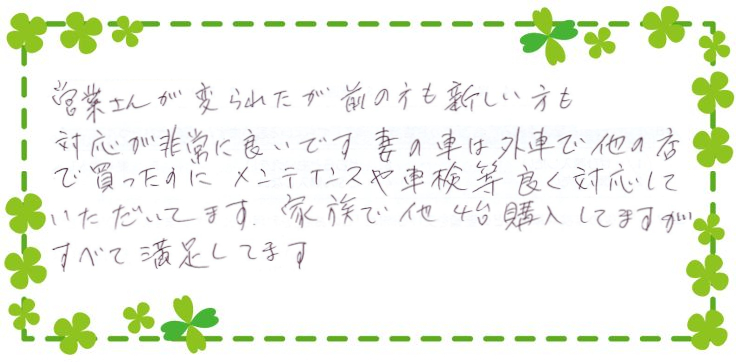 営業さんが変られたが前の方も新しい方も
対応が非常に良いです妻の車は外車で他の店
で買ったのにメンテナンスや車検等良く対応して
いただいてます.家族で他4台購入してますが
すべて満足してます